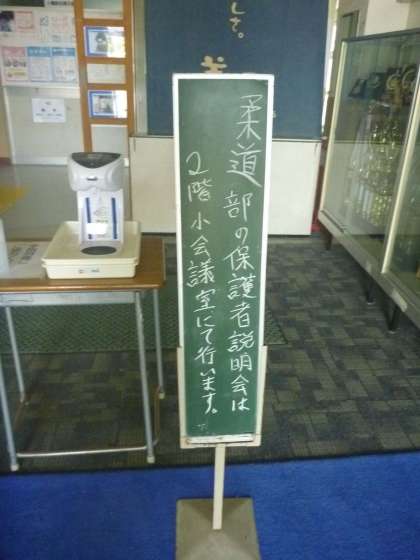 柔道部の保護者説明会は
2階小会議室にて行います。
しさ。